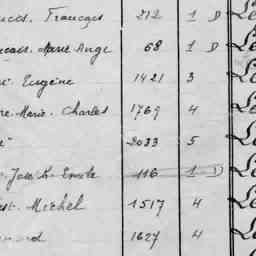 François 212 1 D Le
Marie Ange 68 1 D Le
Eugène 1421 3 Le
Marie. Charles 1769 4 Le
2033 5 Le
116 1 D Le
Michel 1517 4 Le
1627 4 Le